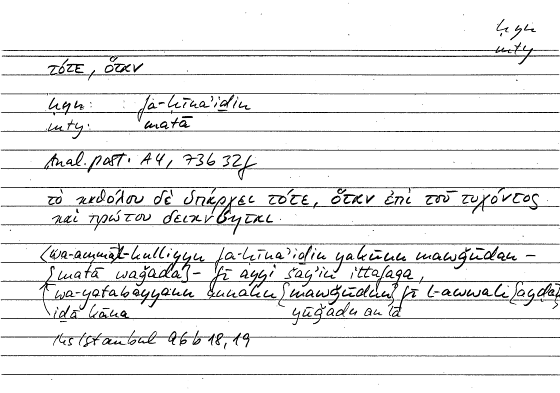 ḥyn
mty
τότε, ὅταν
ḥyn: fa-ḥīna'iḏin
mty: matā
Anal. post. A4, 73b 32f
τὸ καθόλου δὲ ὑπάρχει τότε, ὅταν ἐπὶ τοῦ τυχόντος
καὶ πρώτου δεικνύηται.
wa-ammā l-kulliyyu fa-ḥīna'iḏin yakūnu mawǧūdan –
{matā waǧada} – fī ayyi šay'in ittafaqa,
wa-yatabayyanu annahu {mawǧūdun} fī l-awwali
iḏā kāna yūǧadu
Hs Istanbul 96b 18, 19